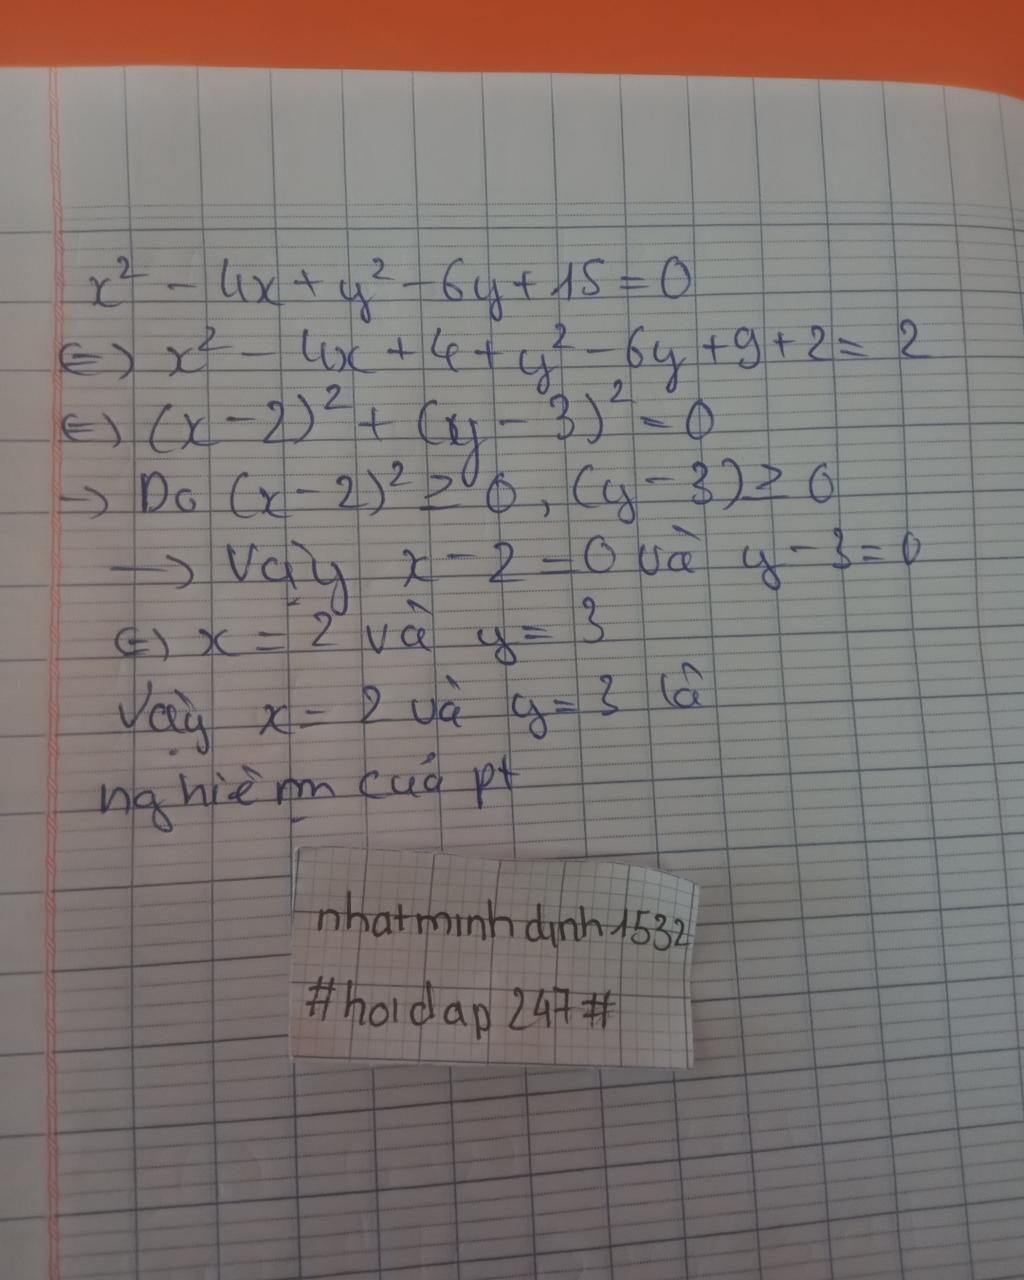 x² - 4x + y² - 6y + 15 = 0
⇔ x² - 4x + 4 + y² - 6y + 9 + 2 = 2
⇔ (x - 2)² + (y - 3)² = 0
→ Do (x - 2)² ≥ 0, (y - 3) ≥ 0
→ Vậy x - 2 = 0 và y - 3 = 0
⇔ x = 2 và y = 3
Vậy x = 2 và y = 3 là
nghiệm của pt
nhatminhdinh1532
#hoidap247#